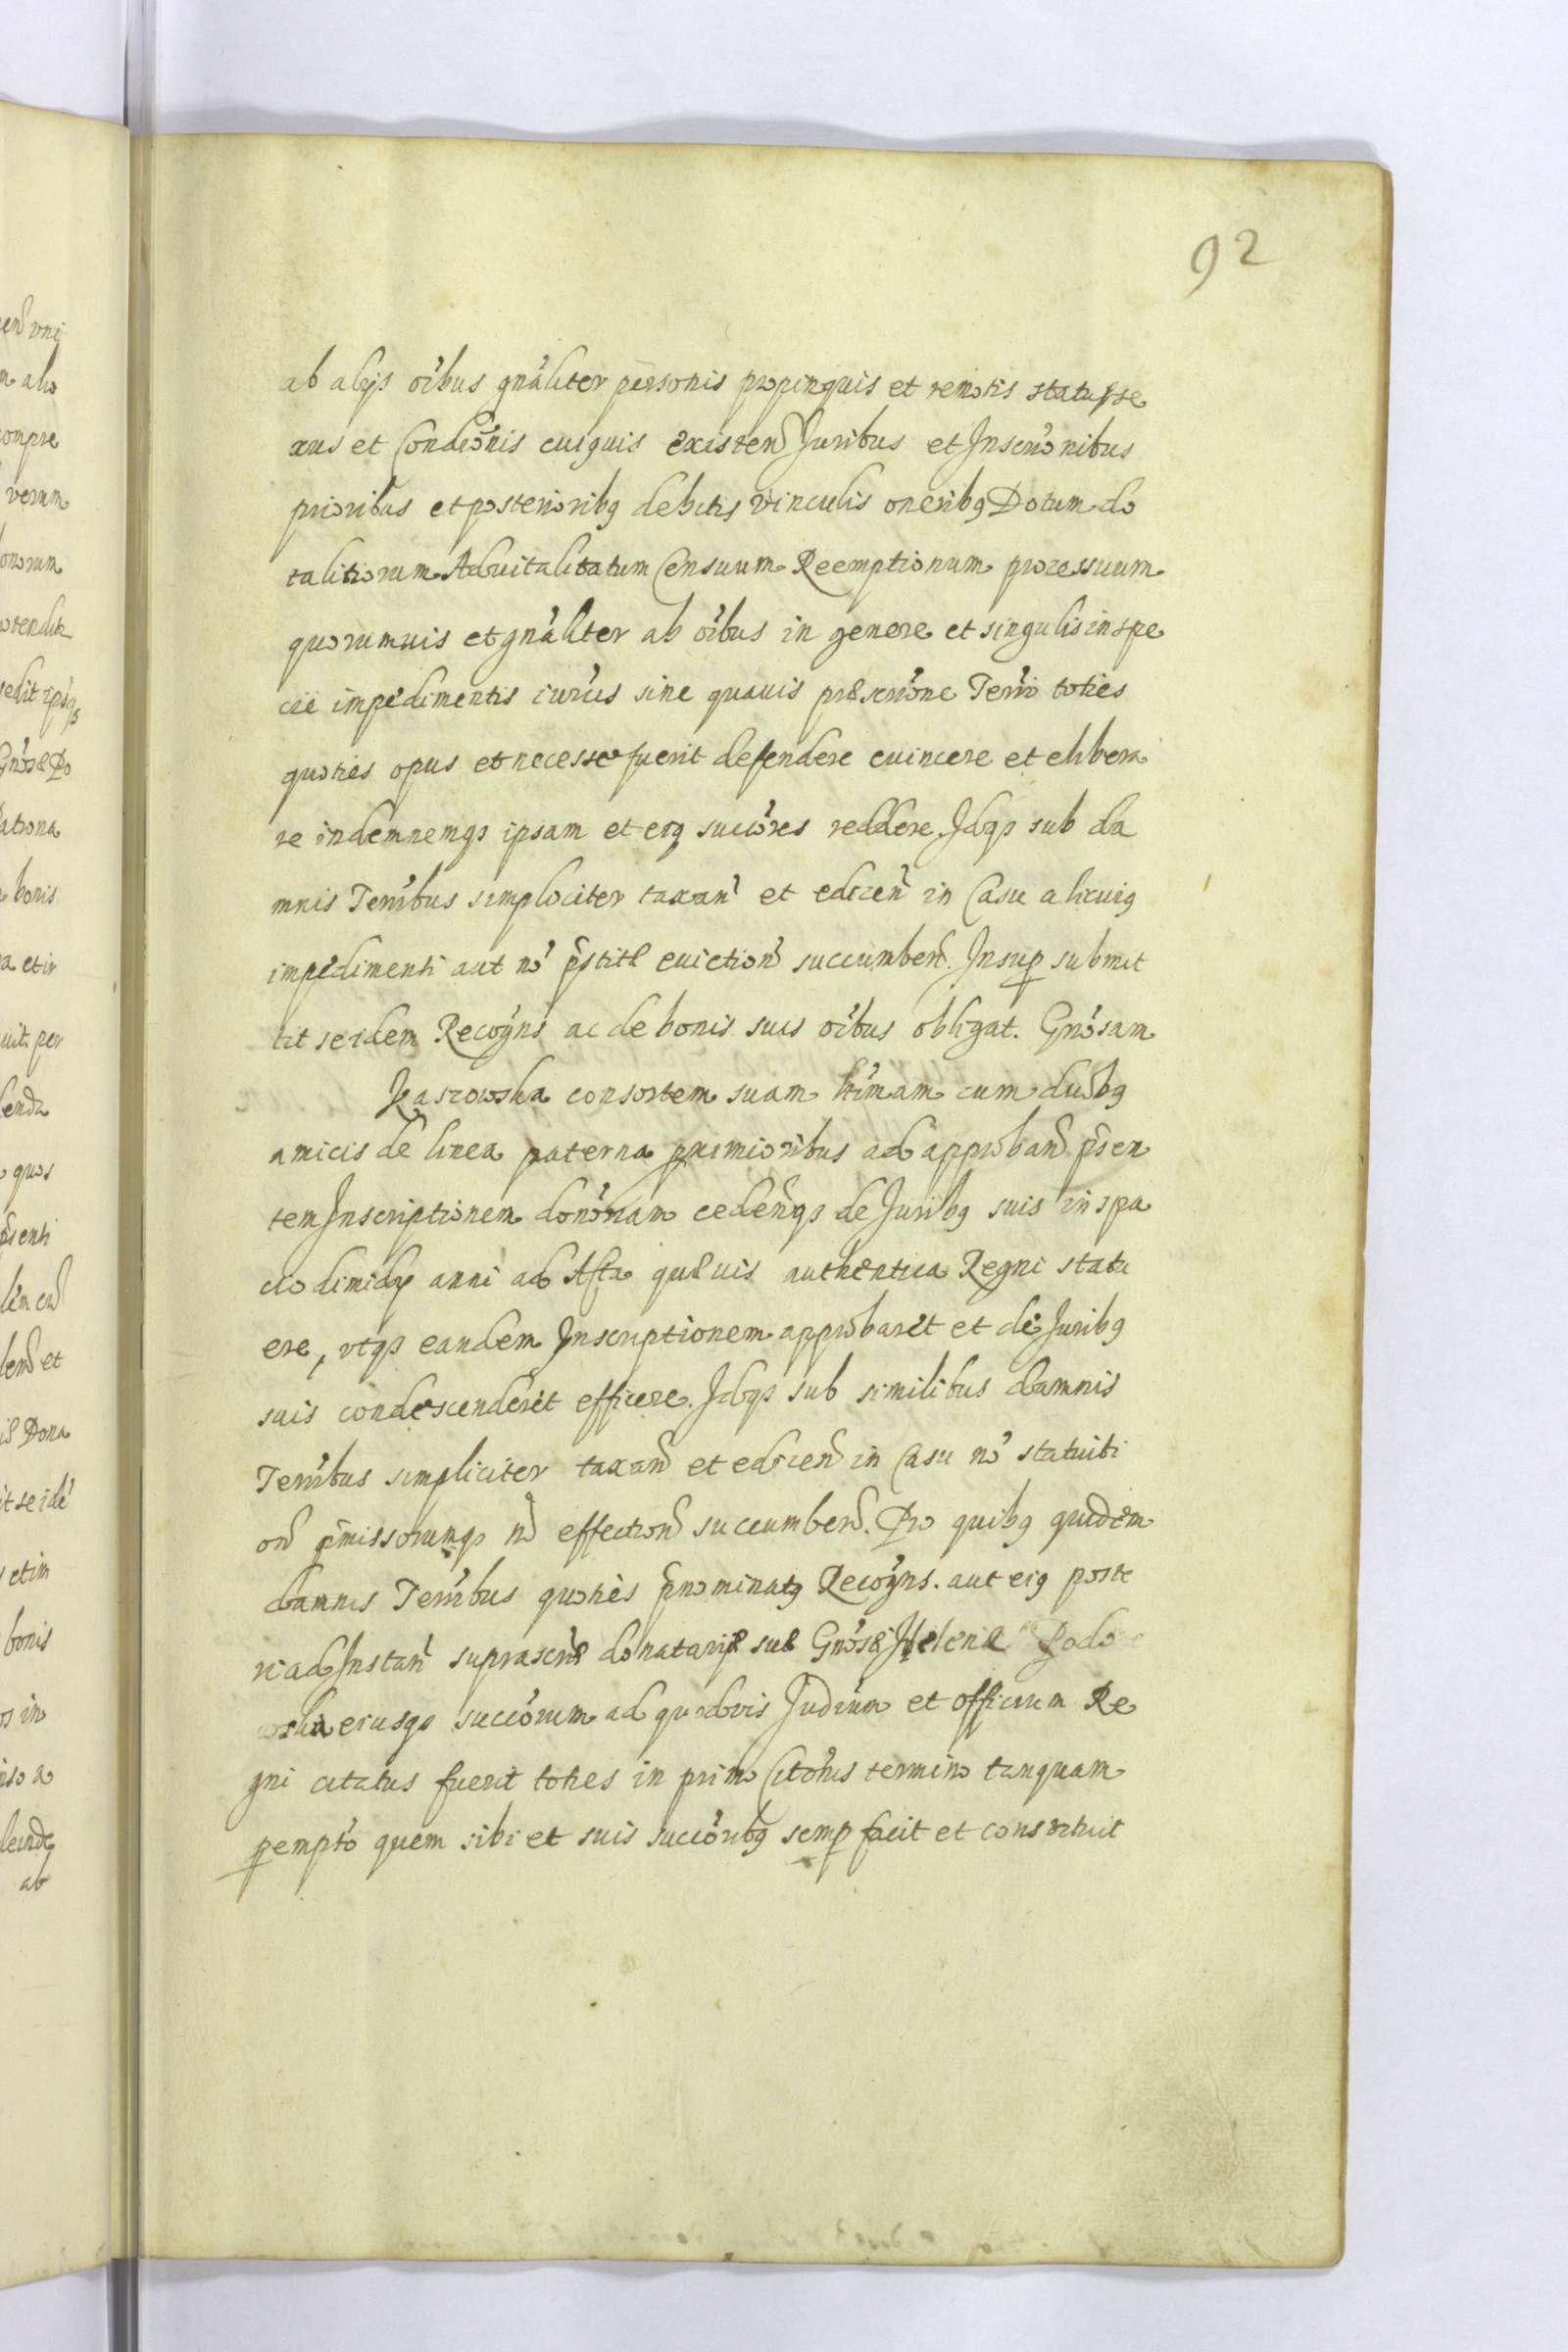 92
ab alijs oĩbus gnãliter personis propinquis et remotis status se
xus et Condiõnis cuiquis existeñ Juribus et Inscriõnibus
prioribus et posterioribq debitis vinculis oneribq Dotum do
talitiorum Aduitalitatum Censuum Reemptionum processuum
quorumuis et gnãliter ab oĩbus in genere et singulis in spe
cie impedimentis iuriũs sine quauis præscriõne Terrẽ toties
quoties opus et necesse fuerit defendere euincere et elibera
re indemnemqs ipsam et eiq succõres reddere. Idqs sub da
mnis Terrĩbus simpliciter taxañ et ediceñ in Casu alicuiq
impedimenti aut nõ p̃stitæ euictioñ succumbeñ. Insup submit
tit se idem Recogñs ac de bonis suis oĩbus obligat. Gnõsam
Kaszowska consortem suam ltĩmam cum duobq
amicis de linea paterna primioribus ad approbañ p̃sen
tem Inscriptionem donõriam cedeñqs de Juribq suis in spa
cio dimidij anni ad Acta quæuis authentica Regni statu
ere, vtqs eandem Inscriptionem approbaret et de Juribq
suis condescenderet efficere. Idqs sub similibus damnis
Terrĩbus simpliciter taxañ et ediceñ in Casu nõ statuiti
oñ p̃missorumqs nõ effectioñ succumbeñ. Pro quibq quidem
damnis Terrĩbus quoties p̃nominatq Recogñs. aut eiq poste
ri ad Instañ suprascrip̃æ donatarijæ suæ Gnõsæ Helenæ Podo
wska eiusqs succõrum ad quoduis Judiũm et officium Re
gni citatus fuerit toties in primo Citõnis termino tanquam
pempto quem sibi et suis succõribq semp facit et constituit
en͂ vni
m alio
ompre
verum
onorum
edit
atrona
bonis
a et in
uit per
enda
quos
senti
en͂ et
Dona
it se idẽ
et im
bonis
os in
ab